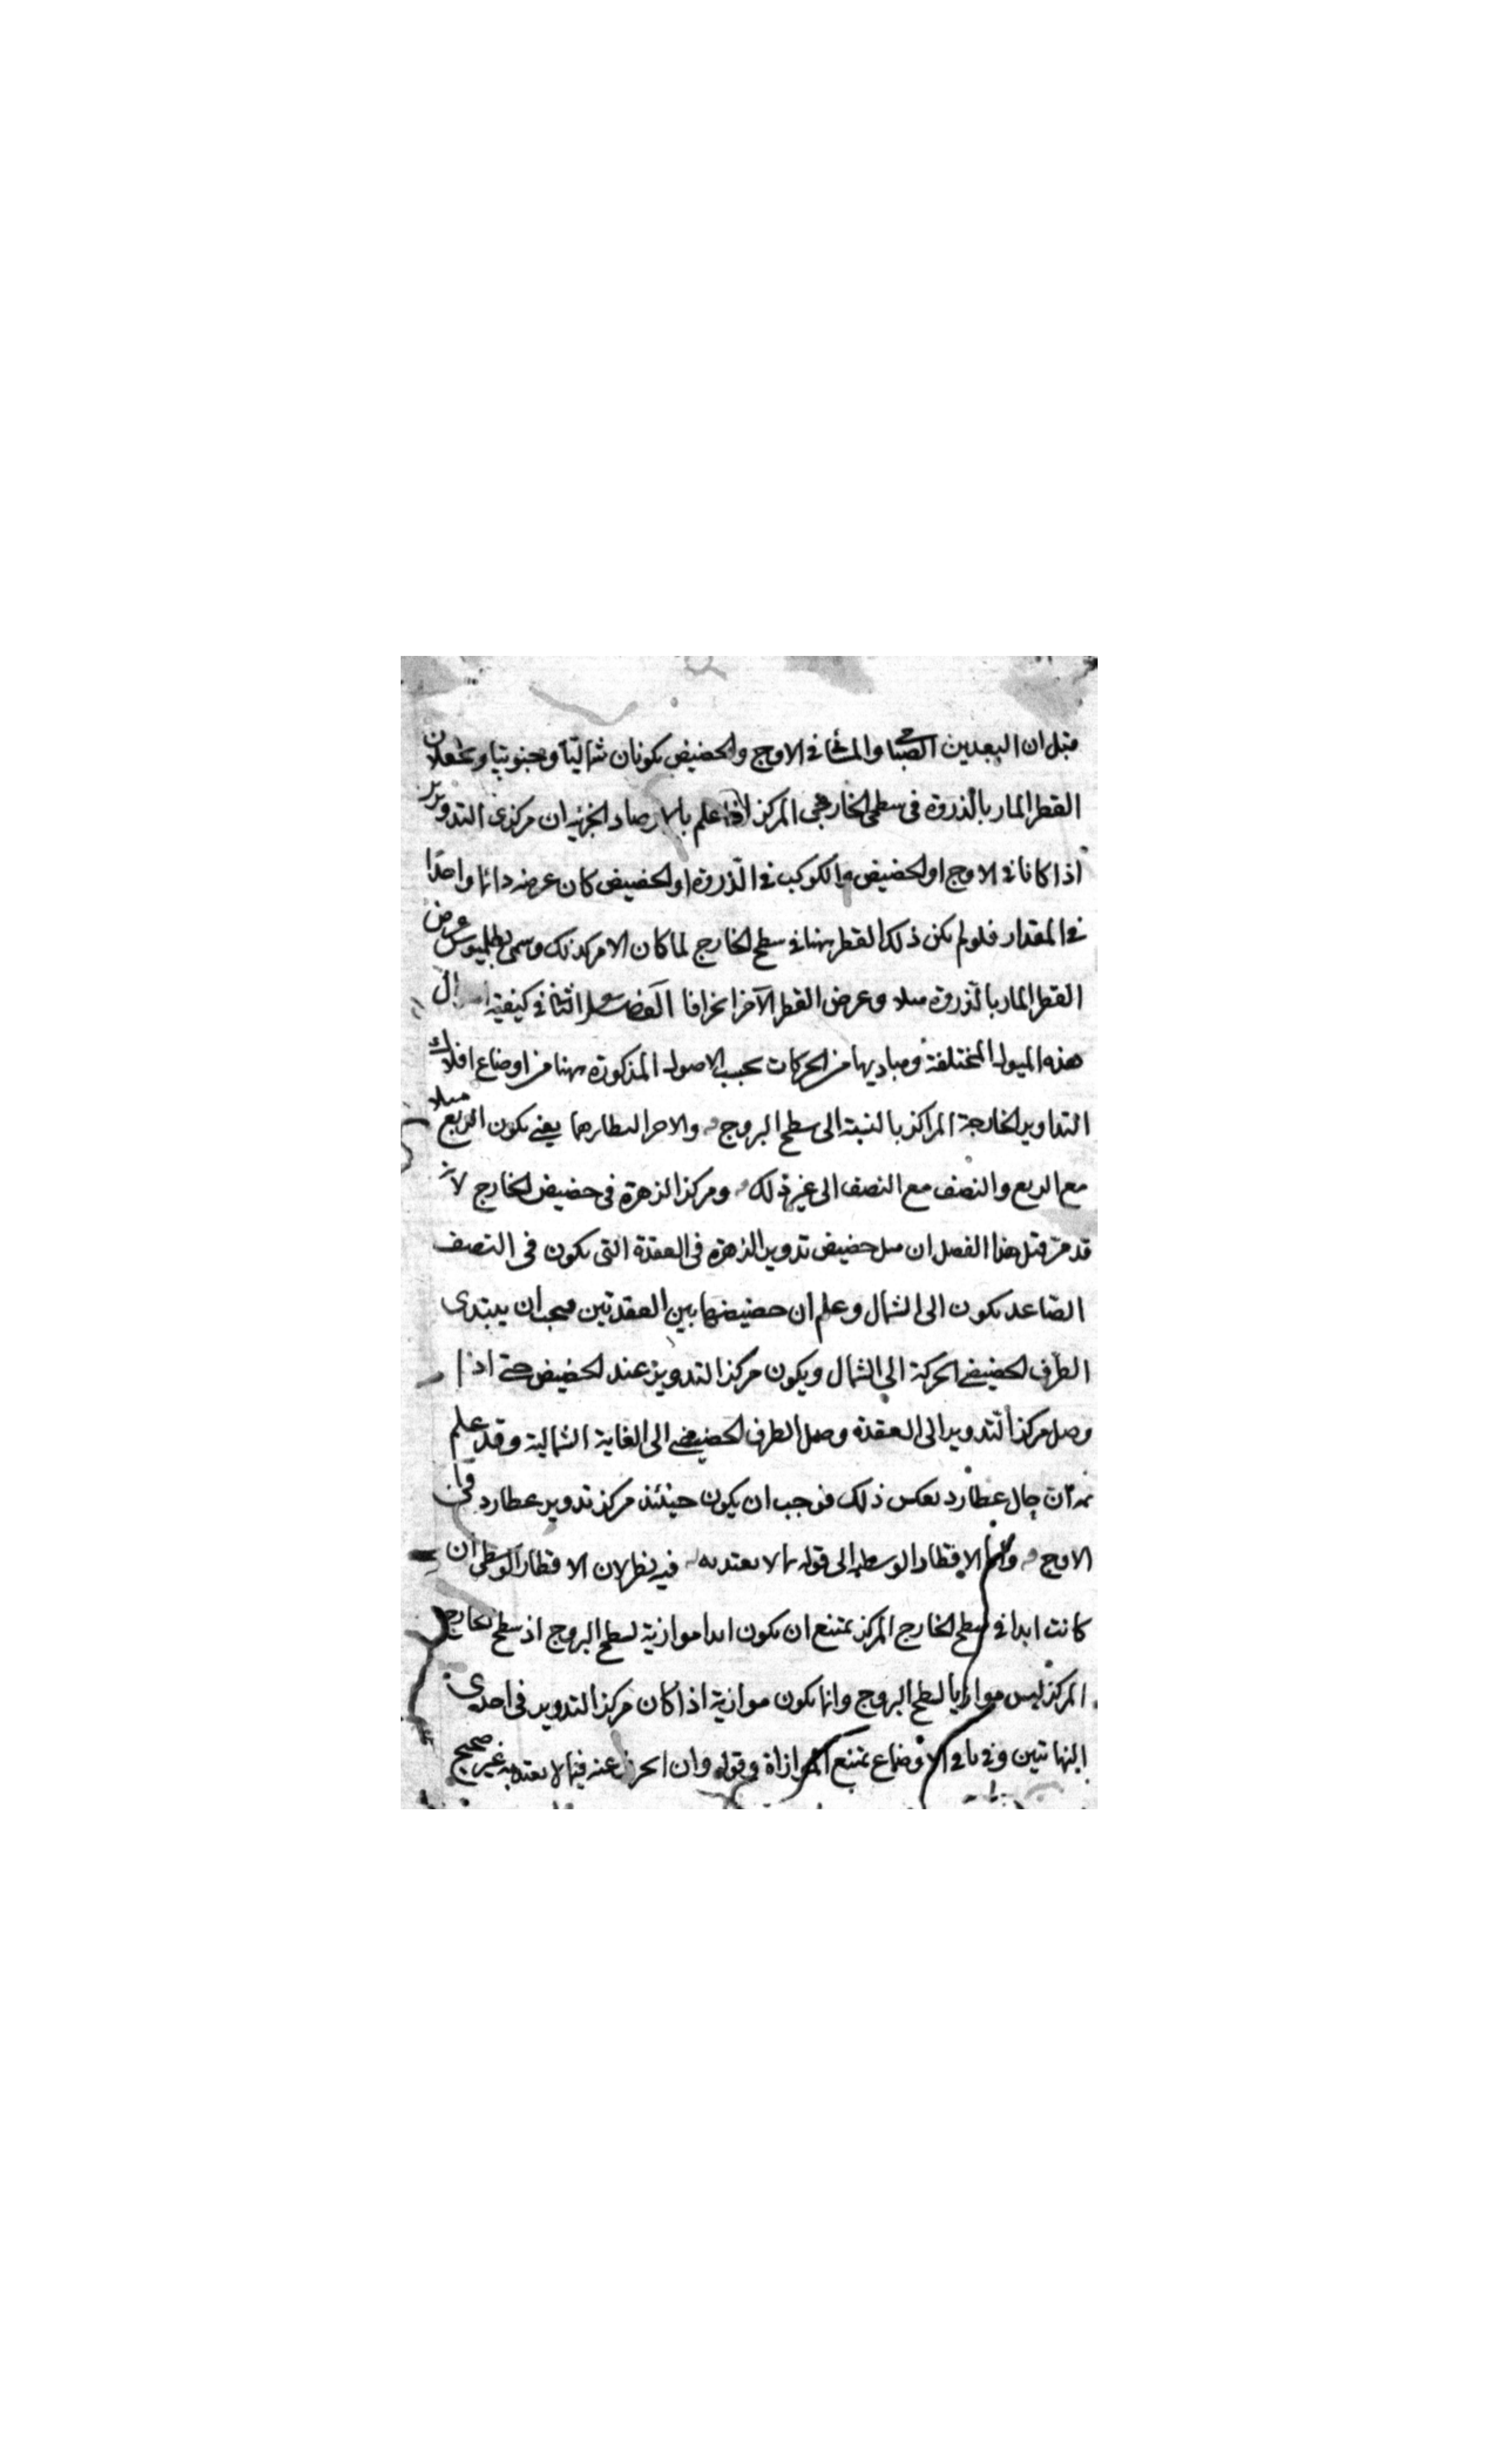 قبل ان البعدين الصباحي والمسائي في الاوج والحضيض يكونان شماليا وجنوبيا ويجعلان
القطر المار بالذروة في سطحي الخارجي المركز اذا علم بالارصاد الجزئية ان مركزي التدوير
اذا كانا في الاوج او الحضيض والكوكب في الذروة او الحضيض كان عرضه دائما واحدا
في المقدار فلو لم يكن ذلك القطر ههنا في سطح الخارج لما كان الامر كذلك وسمى بطلميوس عرض
القطر المار بالذروة ميلا وعرض القطر الآخر انحرافا الفصل الثاني في كيفية
هذه الميول المختلفة ومباديها من الحركات بحسب الاصول المذكورة ههنا من اوضاع افلاك
التداوير الخارجة المراكز بالنسبة الى سطح البروج يعني يكون الربع مثلا
مع الربع والنصف مع النصف الى غير ذلك ومركز الزهرة في حضيض الخارج لانه
قد مر قبل هذا الفصل ان ميل حضيض تدوير الزهرة في العقدة التي يكون في النصف
الصاعد يكون الى الشمال وعلم ان حضيضها بين العقدتين فيجب ان يبتدى
الطرف الحضيضي الحركة الى الشمال ويكون مركز التدوير عند الحضيض حتى اذا
وصل مركز التدوير الى العقدة وصل الطرف الحضيضي الى الغاية الشمالية وقد علم
ثمه ان حال عطارد بعكس ذلك فوجب ان يكون حينئذ مركز تدوير عطارد في
الاوج واما الاقطار الوسطى الى قوله مما لا يعتد به فيه نظر لان الاقطار الوسطى ان
كانت ابدا في سطح الخارج المركز يمتنع ان يكون ابدا موازية لسطح البروج اذ سطح الخارج
المركز ليس موازيا لسطح البروج وانما يكون موازية اذا كان مركز التدوير في احدى
النهايتين وفي باقي الاوضاع يمتنع الموازاة وقوله وان انحرف عنه فيما لا يعتد به غير صحيح